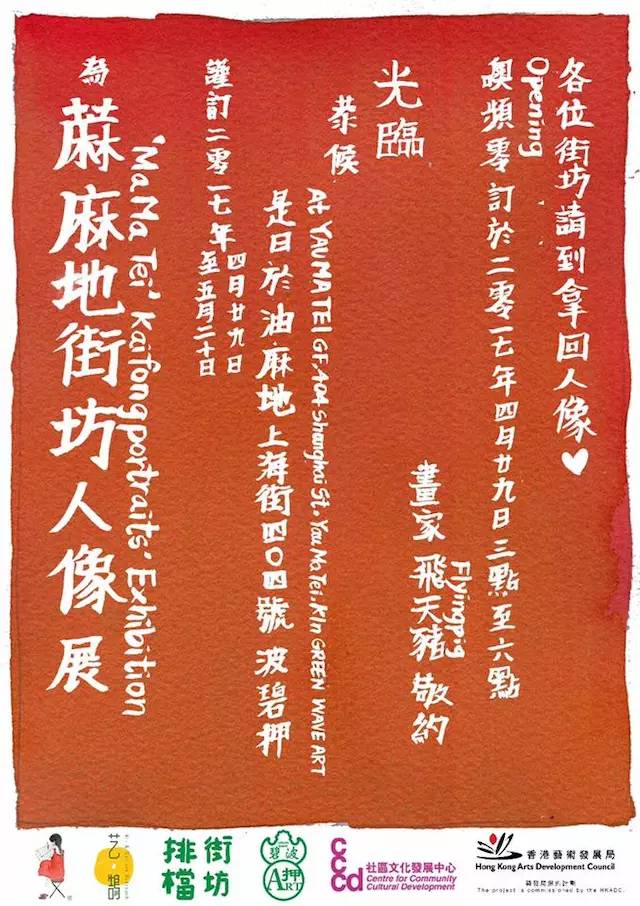 各位街坊請到拿回人像♥
Opening
噢頻零 訂於二零一七年四月廿九日三點至六點
Flyingpig
畫家 飛天豬 敬約
光臨
恭候
At YAUMATEI GF. 404 Shanghai St. Yau Ma Tei. Kln GREEN WAVE ART
是日於油麻地上海街四〇四號 波碧押
謹訂二零一七年四月廿九日
至五月二十日
'Ma Ma Tei' Kaifong portraits' Exhibition
為 蔴麻地街坊人像展
街坊
排檔
碧波
押
ART
cccd
社區文化發展中心
Centre for Community
Cultural Development
香港藝術發展局
Hong Kong Arts Development Council
The project is commissioned by the HKADC.